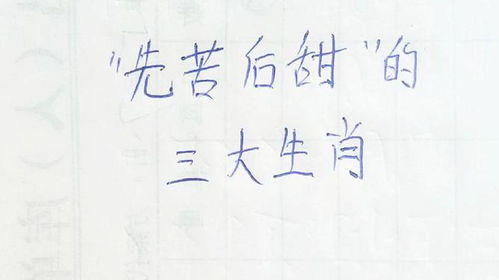 "先苦后甜"的
三大生肖